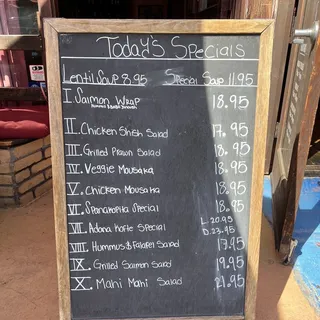 Today's Specials
Lentil Soup 8.95 Special Soup 11.95
I. Salmon Wrap 18.95
II. Chicken Shish Salad 17.95
III. Grilled Prawn Salad 18.95
IV. Veggie Mousaka 18.95
V. Chicken Mousaka 18.95
VI. Spanakopita Special 18.95
VII. Adana Korte Special L. 20.95
D. 23.95
VIII. Hummus & Falafel Salad 17.95
IX. Grilled Salmon Salad 19.95
X. Mahi Mahi Salad 21.95